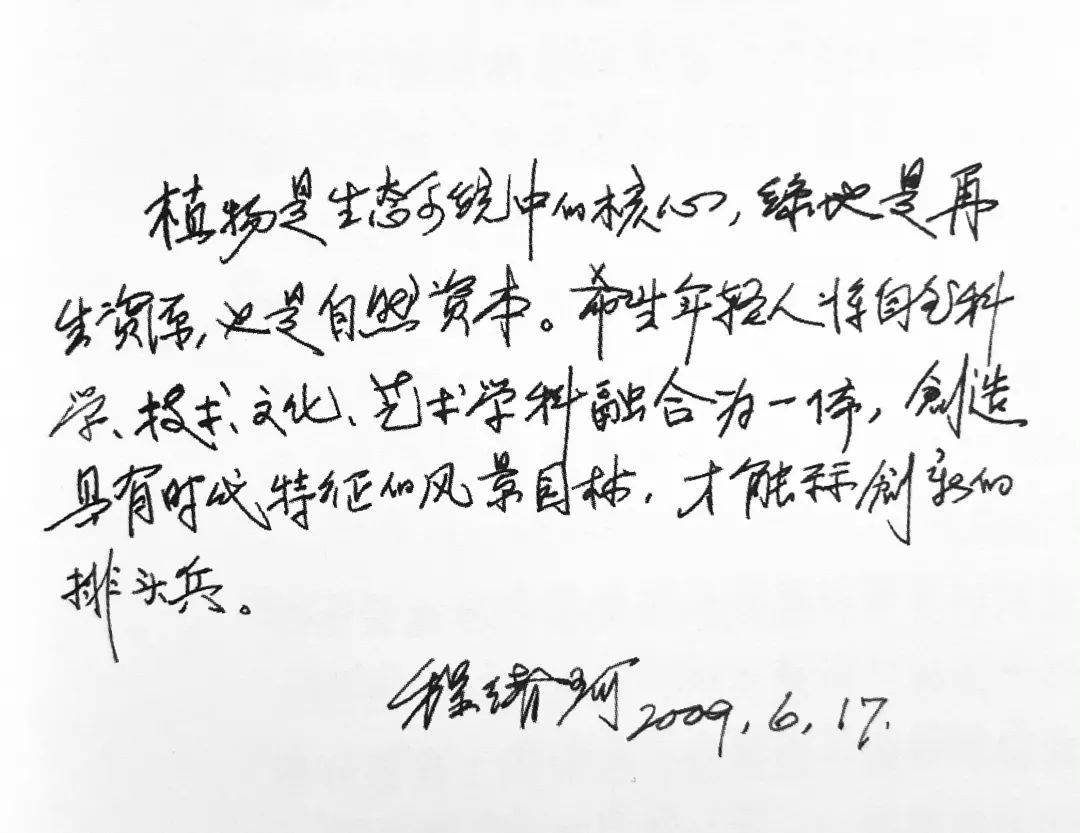 植物是生态系统中的核心，绿地是再
生资源，也是自然资本。希望年轻人将自然科
学、技术、文化、艺术学科融合为一体，创造
具有时代特征的风景园林，才能称创新的
排头兵。
程绪珂 2009.6.17.